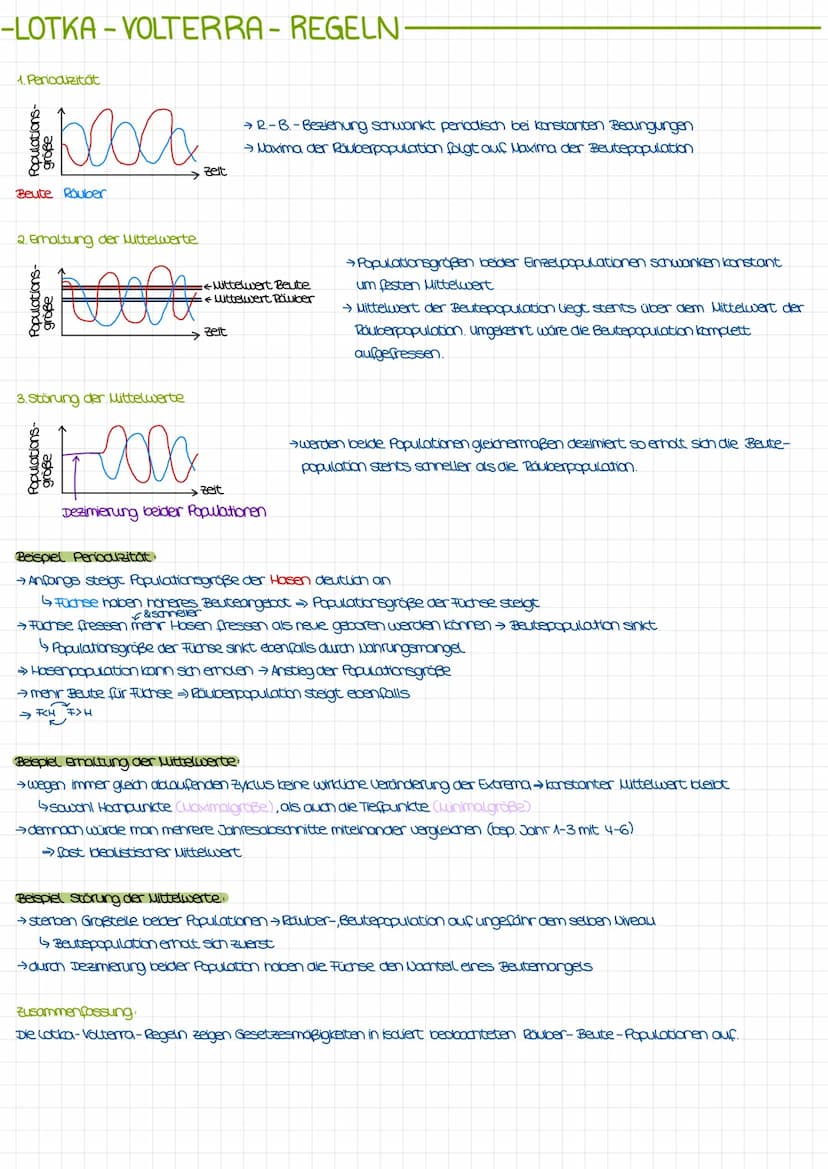 -LOTKA-VOLTERRA-REGELN
1. Periodizität
Populations-
größe
Zeit
Beute Räuber
→ R.-B.-Beziehung schwankt periodisch bei konstanten Bedingungen
→ Maxima der Räuberpopulation folgt auf Maxima der Beutepopulation
2. Erhaltung der Mittelwerte
Populations-
größe
← Mittelwert Beute
← Mittelwert Räuber
Zeit
→ Populationsgrößen beider Einzelpopulationen schwanken konstant
um festen Mittelwert
→ Mittelwert der Beutepopulation liegt stehts über dem Mittelwert der
Räuberpopulation. Umgekehrt wäre die Beutepopulation komplett
aufgefressen.
3. Störung der Mittelwerte
Populations-
größe
Zeit
Dezimierung beider Populationen
→ werden beide Populationen gleichermaßen dezimiert so erholt sich die Beute-
population stehts schneller als die Räuberpopulation.
Beispiel Periodizität:
→ Anfangs steigt Populationsgröße der Hasen deutlich an
↳ Füchse haben höheres Beuteangebot ⇒ Populationsgröße der Füchse steigt
& schneller
→ Füchse fressen mehr Hasen fressen als neue geboren werden können → Beutepopulation sinkt
↳ Populationsgröße der Füchse sinkt ebenfalls durch Nahrungsmangel
→ Hasenpopulation kann sich erholen → Anstieg der Populationsgröße
→ mehr Beute für Füchse ⇒ Räuberpopulation steigt ebenfalls
→ F<H F>H
Beispiel Erhaltung der Mittelwerte:
→ wegen immer gleich ablaufenden Zyklus keine wirkliche Veränderung der Extrema → konstanter Mittelwert bleibt
↳ sowohl Hochpunkte (Maximalgröße), als auch die Tiefpunkte (Minimalgröße)
→ demnach würde man mehrere Jahresabschnitte miteinander vergleichen (bsp. Jahr 1-3 mit 4-6)
⇒ fast idealistischer Mittelwert
Beispiel Störung der Mittelwerte:
→ sterben Großteile beider Populationen → Räuber-, Beutepopulation auf ungefähr dem selben Niveau
↳ Beutepopulation erholt sich zuerst
→ durch Dezimierung beider Population haben die Füchse den Nachteil eines Beutemangels
Zusammenfassung:
Die Lotka-Volterra-Regeln zeigen Gesetzesmäßigkeiten in isoliert beobachteten Räuber-Beute-Populationen auf.